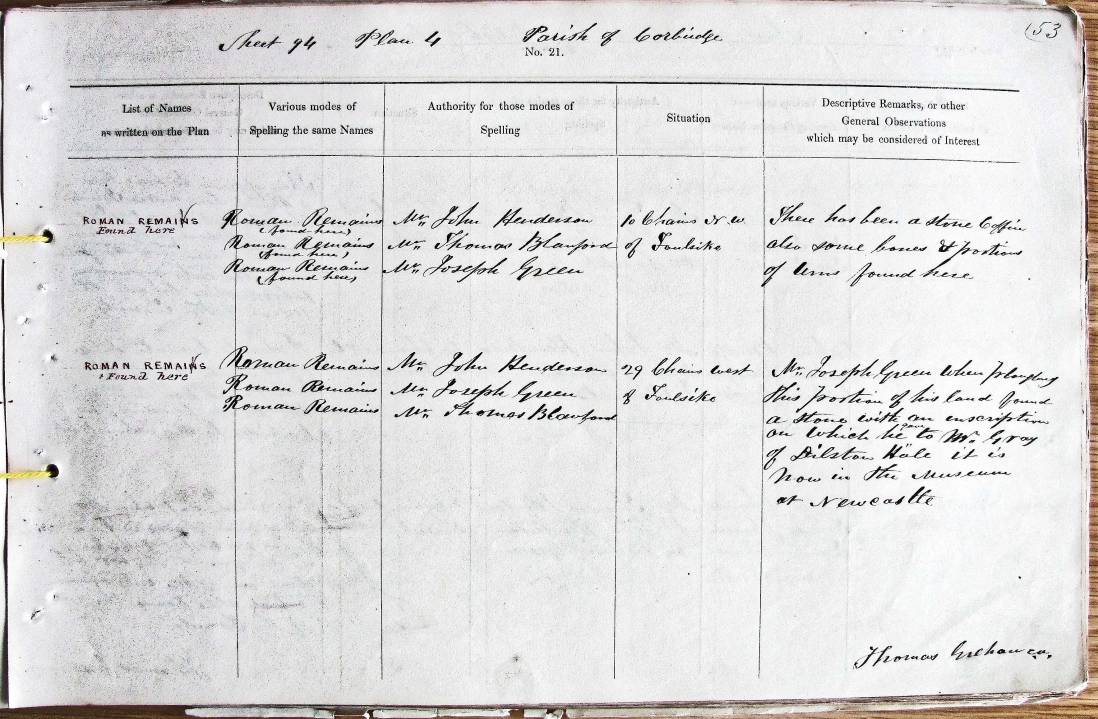 Sheet 94 Plan 4 Parish of Corbridge
53
No. 21.
List of Names
as written on the Plan
Various modes of
Spelling the same Names
Authority for those modes of
Spelling
Situation
Descriptive Remarks, or other
General Observations
which may be considered of Interest
ROMAN REMAINS
Found here
Roman Remains
(found here)
Roman Remains
(found here)
Roman Remains
(found here)
Mr. John Henderson
Mr. Thomas Blanford
Mr. Joseph Green
10 Chains N.W.
of Foulsike
There has been a stone Coffin
also some bones & portions
of Urns found here
ROMAN REMAINS
Found here
Roman Remains
Roman Remains
Roman Remains
Mr. John Henderson
Mr. Joseph Green
Mr. Thomas Blanford
29 Chains West
of Foulsike
Mr. Joseph Green when ploughing
this portion of his land found
a stone with an inscription
on which he gave to Mr. Gray
of Dilston Hále it is
now in the Museum
at Newcastle
Thomas